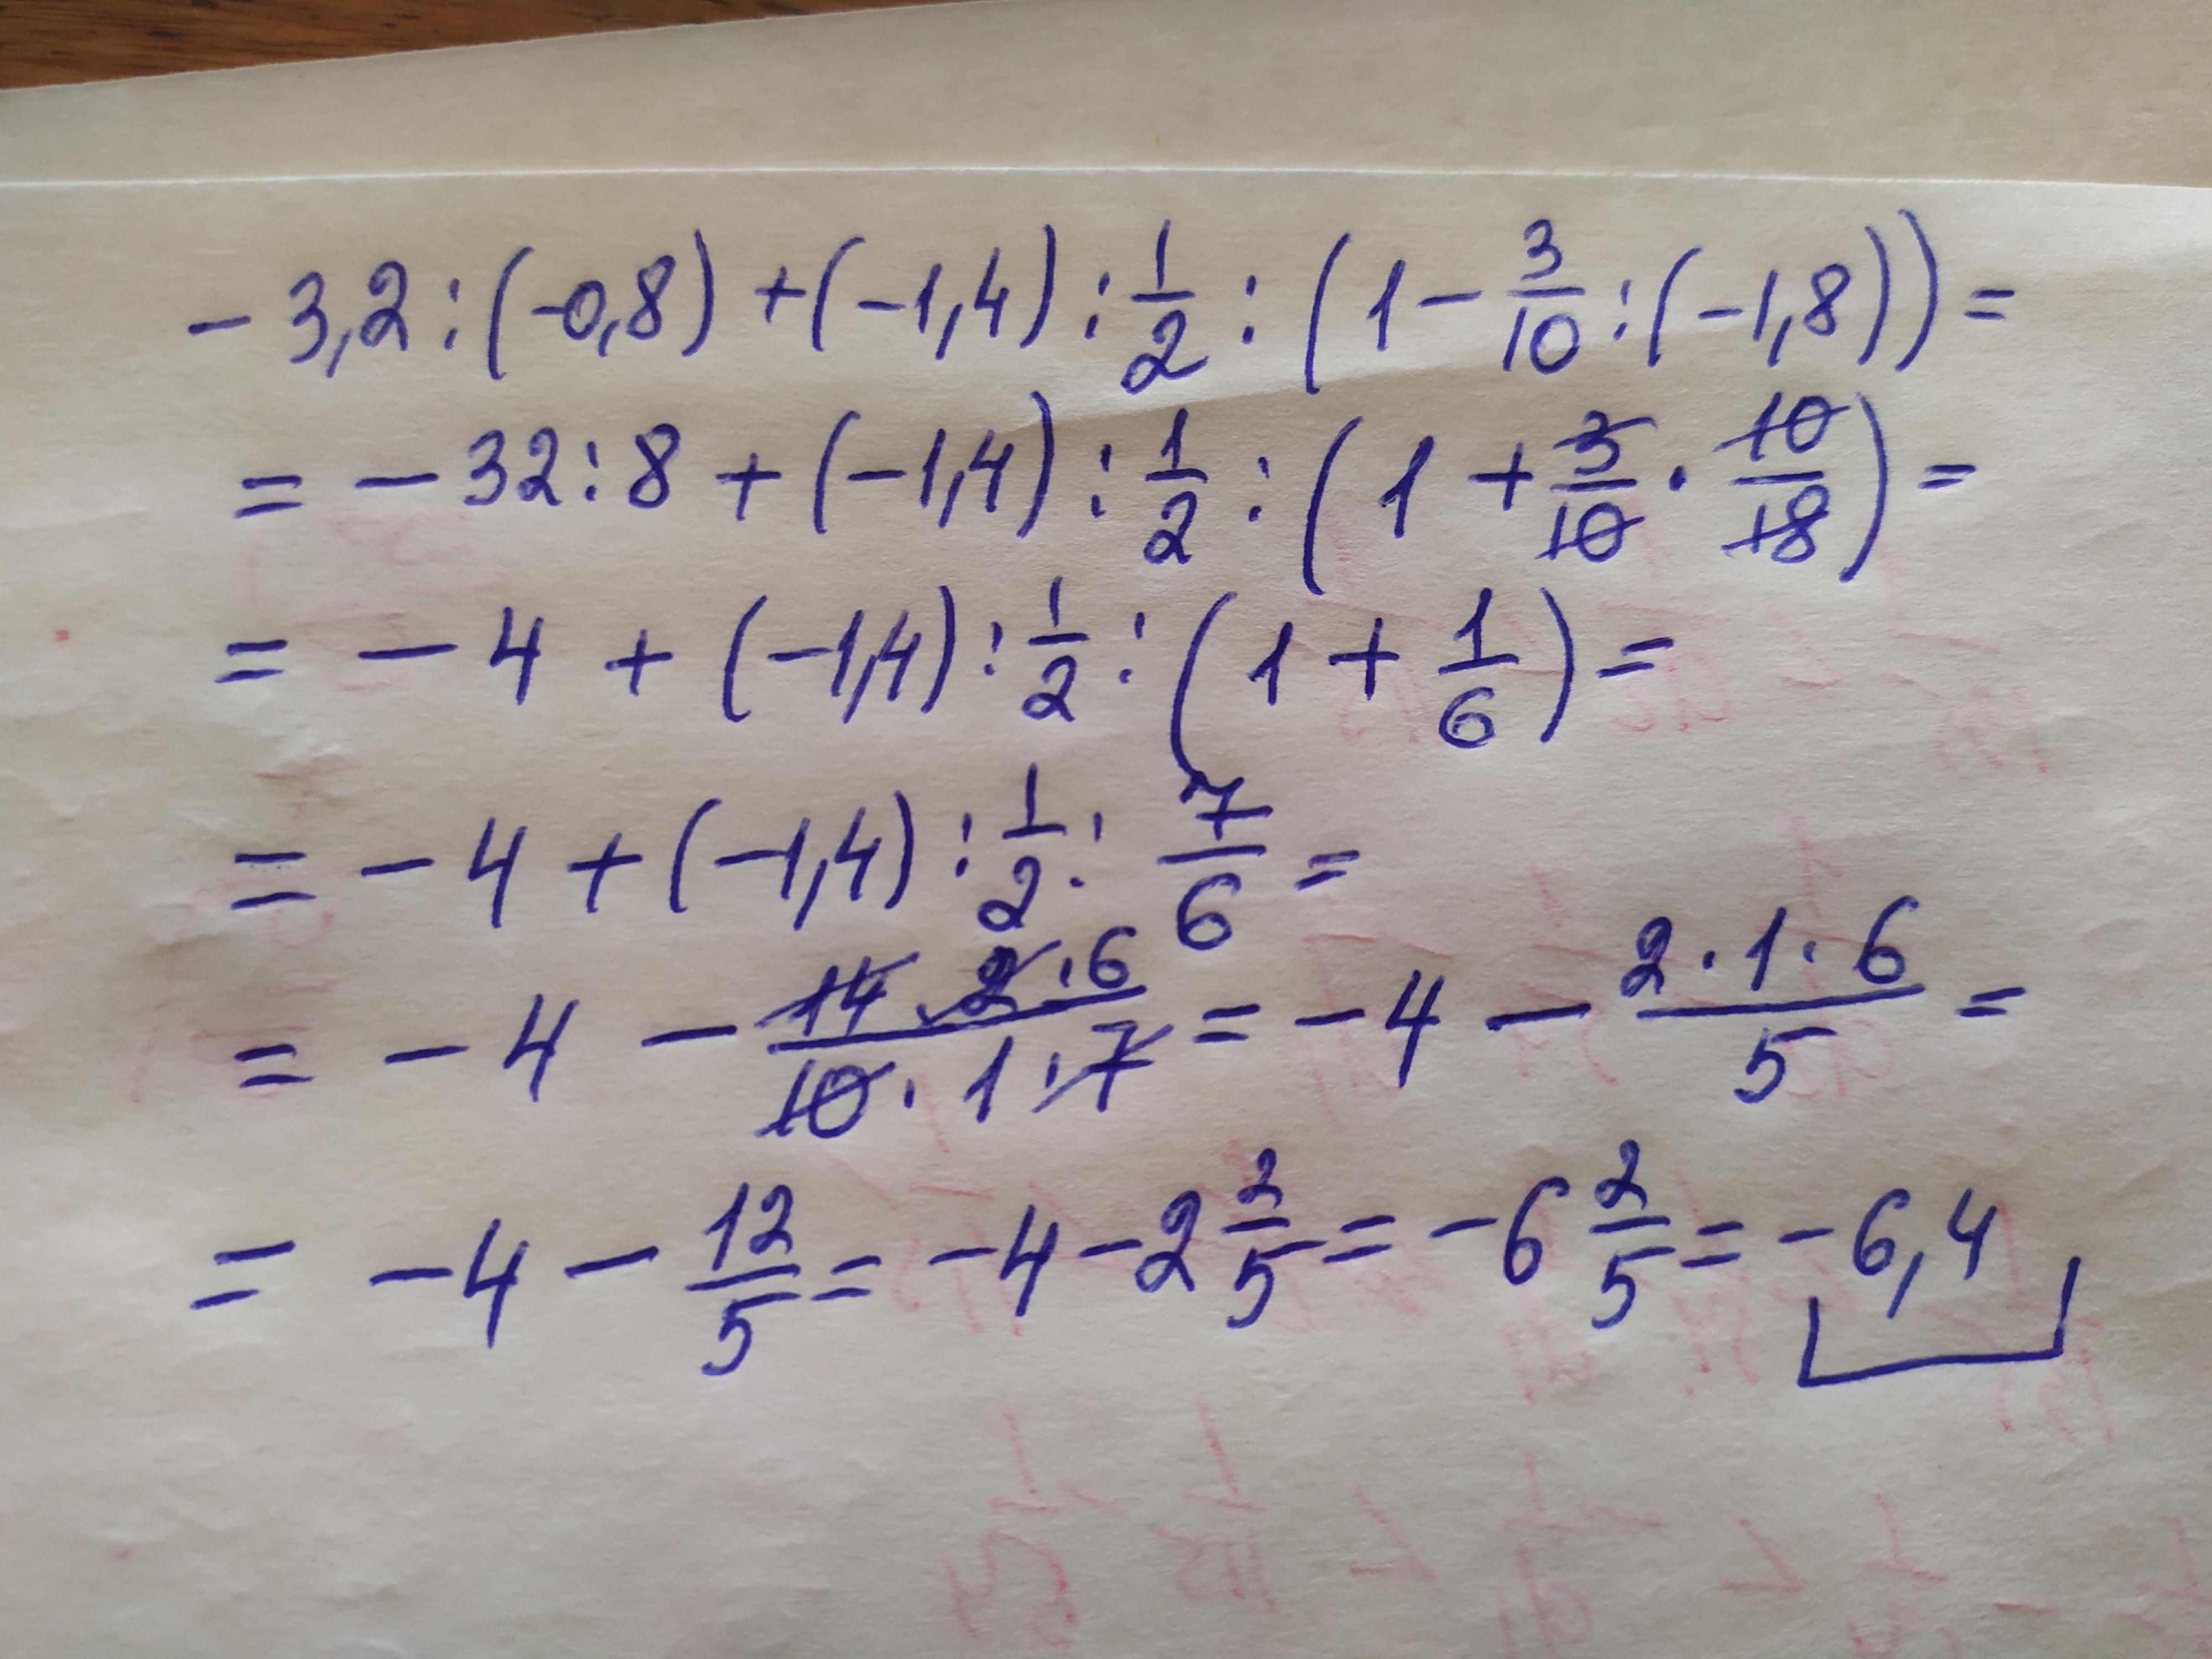 - 3,2 : (-0,8) + (-1,4) : 1/2 : (1 - 3/10 : (-1,8)) =
= - 32 : 8 + (-1,4) : 1/2 : (1 + 3/10 · 10/18) =
= - 4 + (-1,4) : 1/2 : (1 + 1/6) =
= - 4 + (-1,4) : 1/2 : 7/6 =
= - 4 - (14 · 2 · 6)/(10 · 1 · 7) = - 4 - (2 · 1 · 6)/5 =
= - 4 - 12/5 = - 4 - 2 2/5 = - 6 2/5 = - 6,4